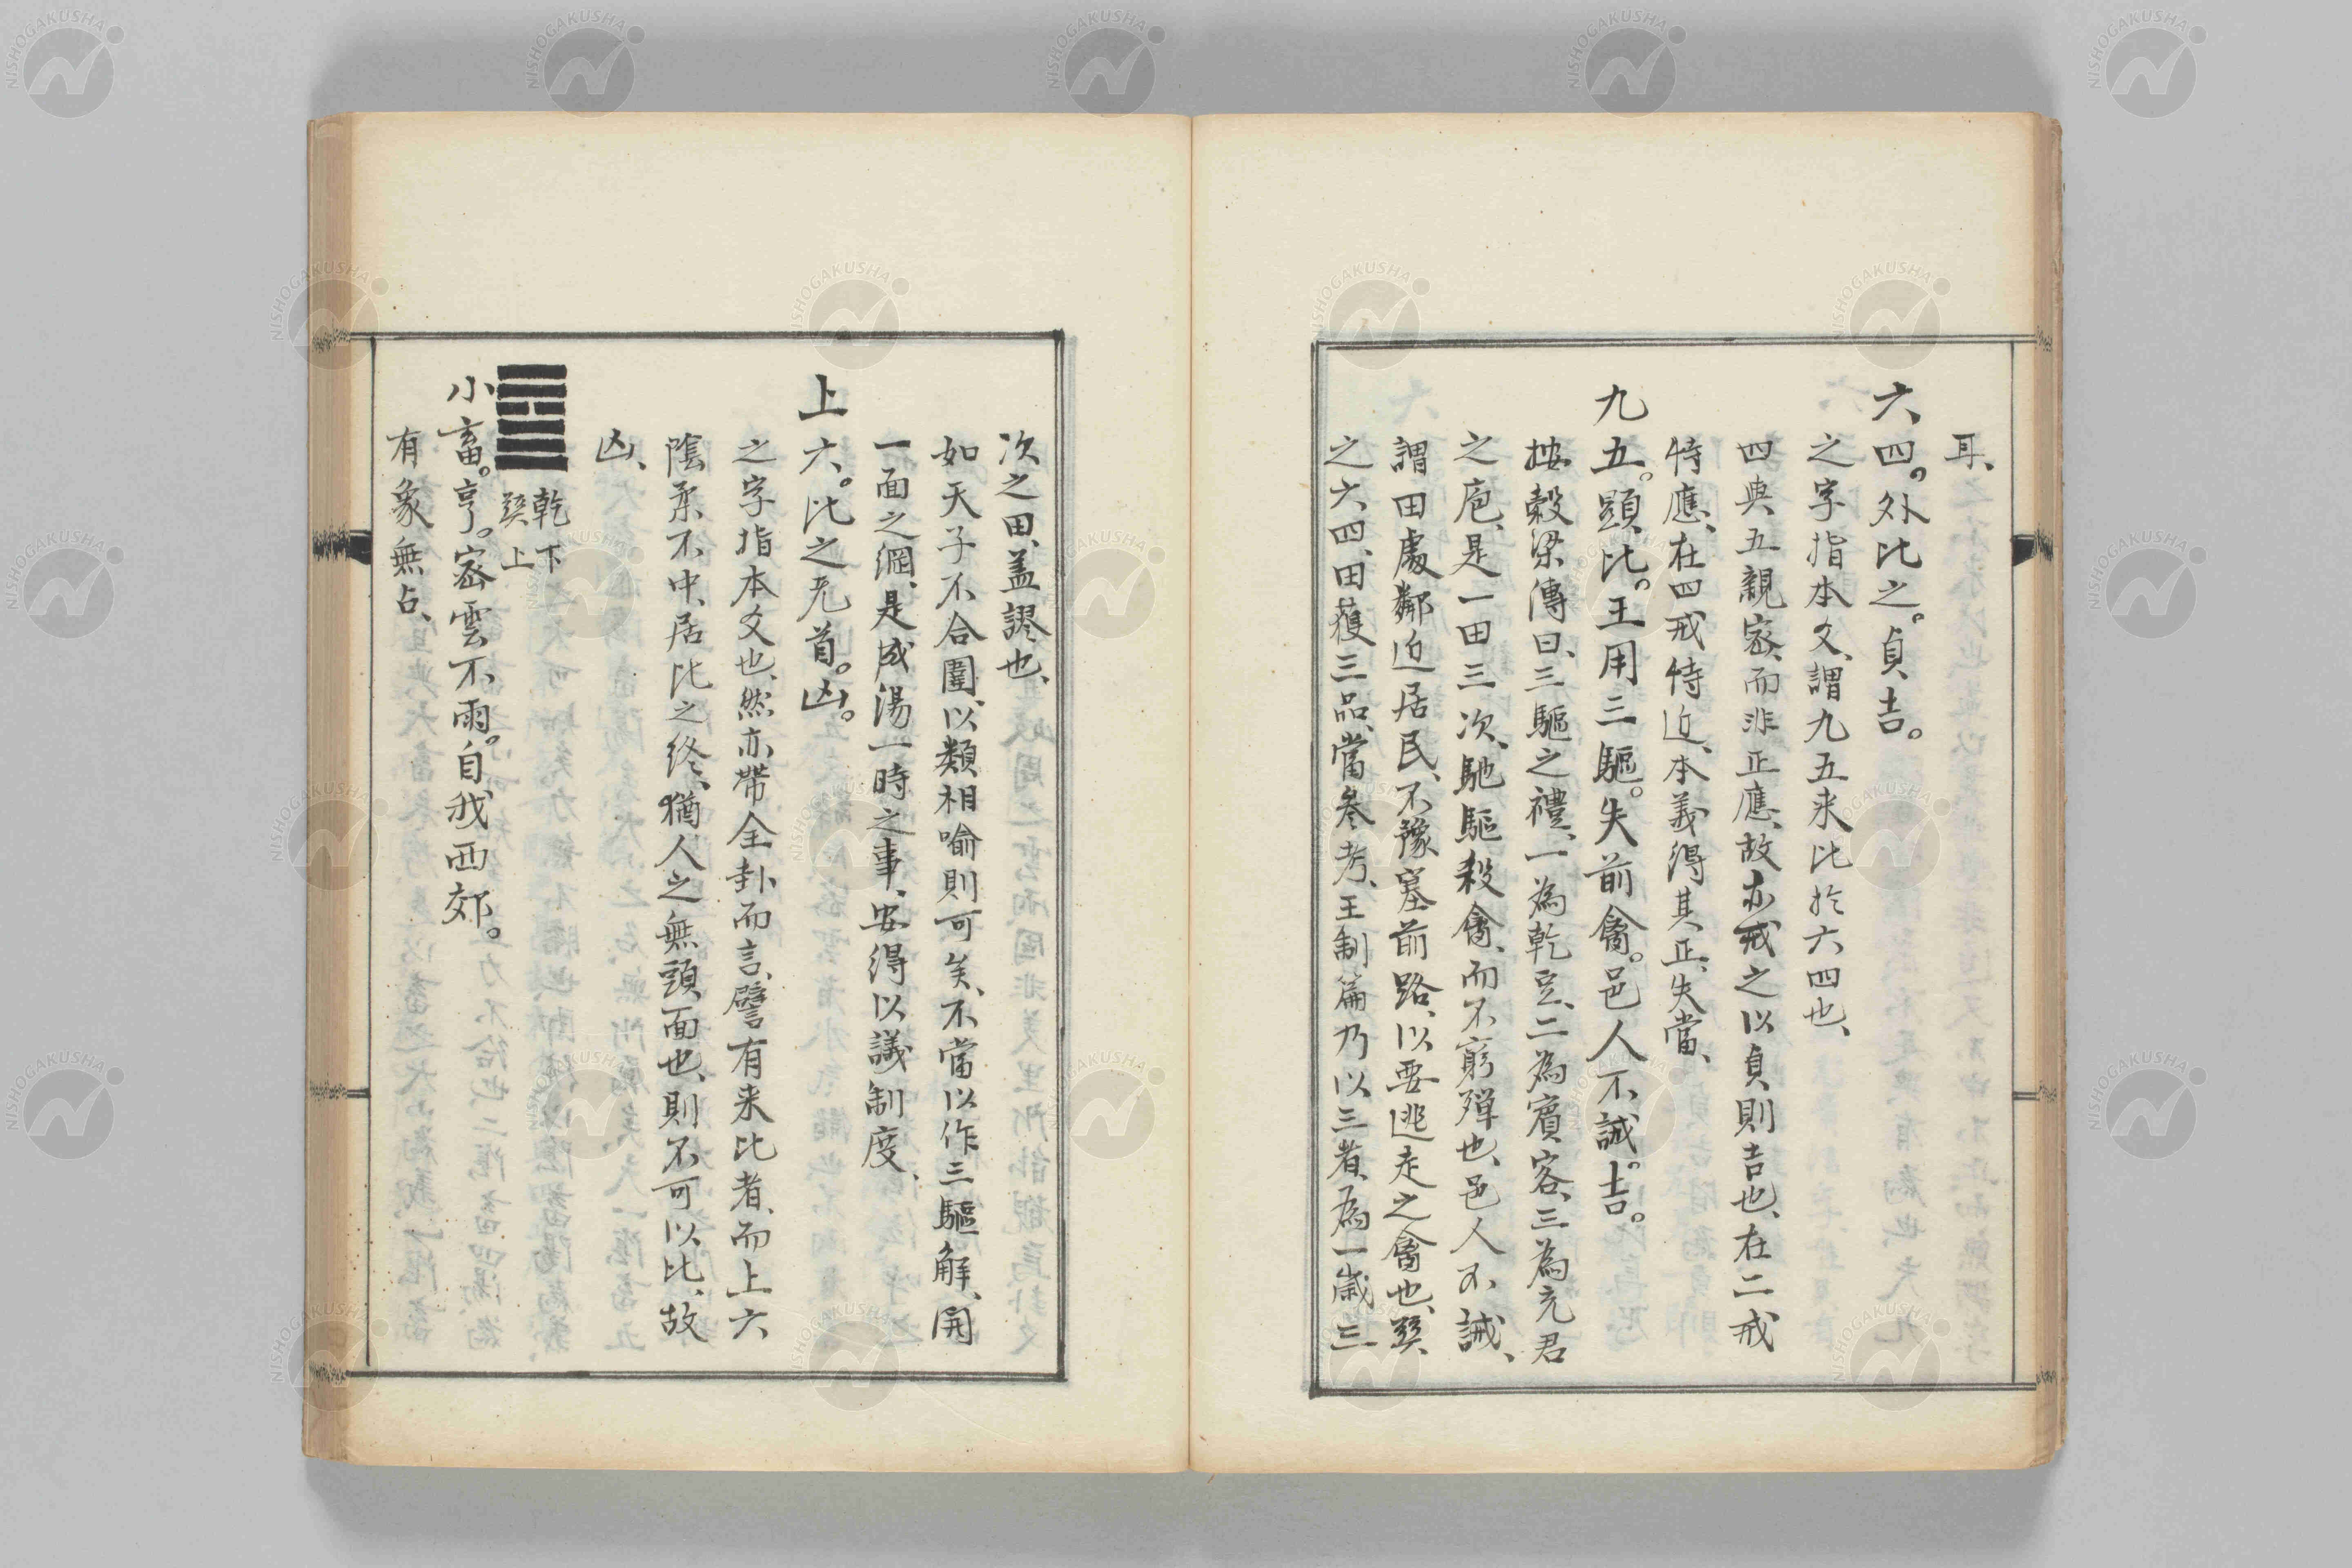 耳、
六四。外比之。貞吉。
之字指本爻、謂九五来比於六四也、
四與五親密、而非正應、故亦戒之以貞則吉也、在二戒
特應、在四戒特近、本義得其正、失當、
九五。顕比。王用三驅。失前禽。邑人不誡。吉。
按穀梁傳曰、三驅之禮、一為乾豆、二為賓客、三為充君
之庖、是一田三次、馳驅殺禽、而不窮殫也、邑人不誡、
謂田處鄰近居民、不豫塞前路、以要逃走之禽也、巽、
之六四、田獲三品、當参考、王制篇乃以三者、為一歳三
次之田、盖謬也、
如天子不合圍、以類相喻則可矣、不當以作三驅解、開
一面之網、是成湯一時之事、安得以議制度、
上六。比之无首。凶。
之字指本爻也、然亦帶全卦而言、譬有来比者、而上六
陰柔不中、居比之終、猶人之無頭面也、則不可以比、故
凶、
乾下
巽上
小畜。亨。密雲不雨。自我西郊。
有象無占、